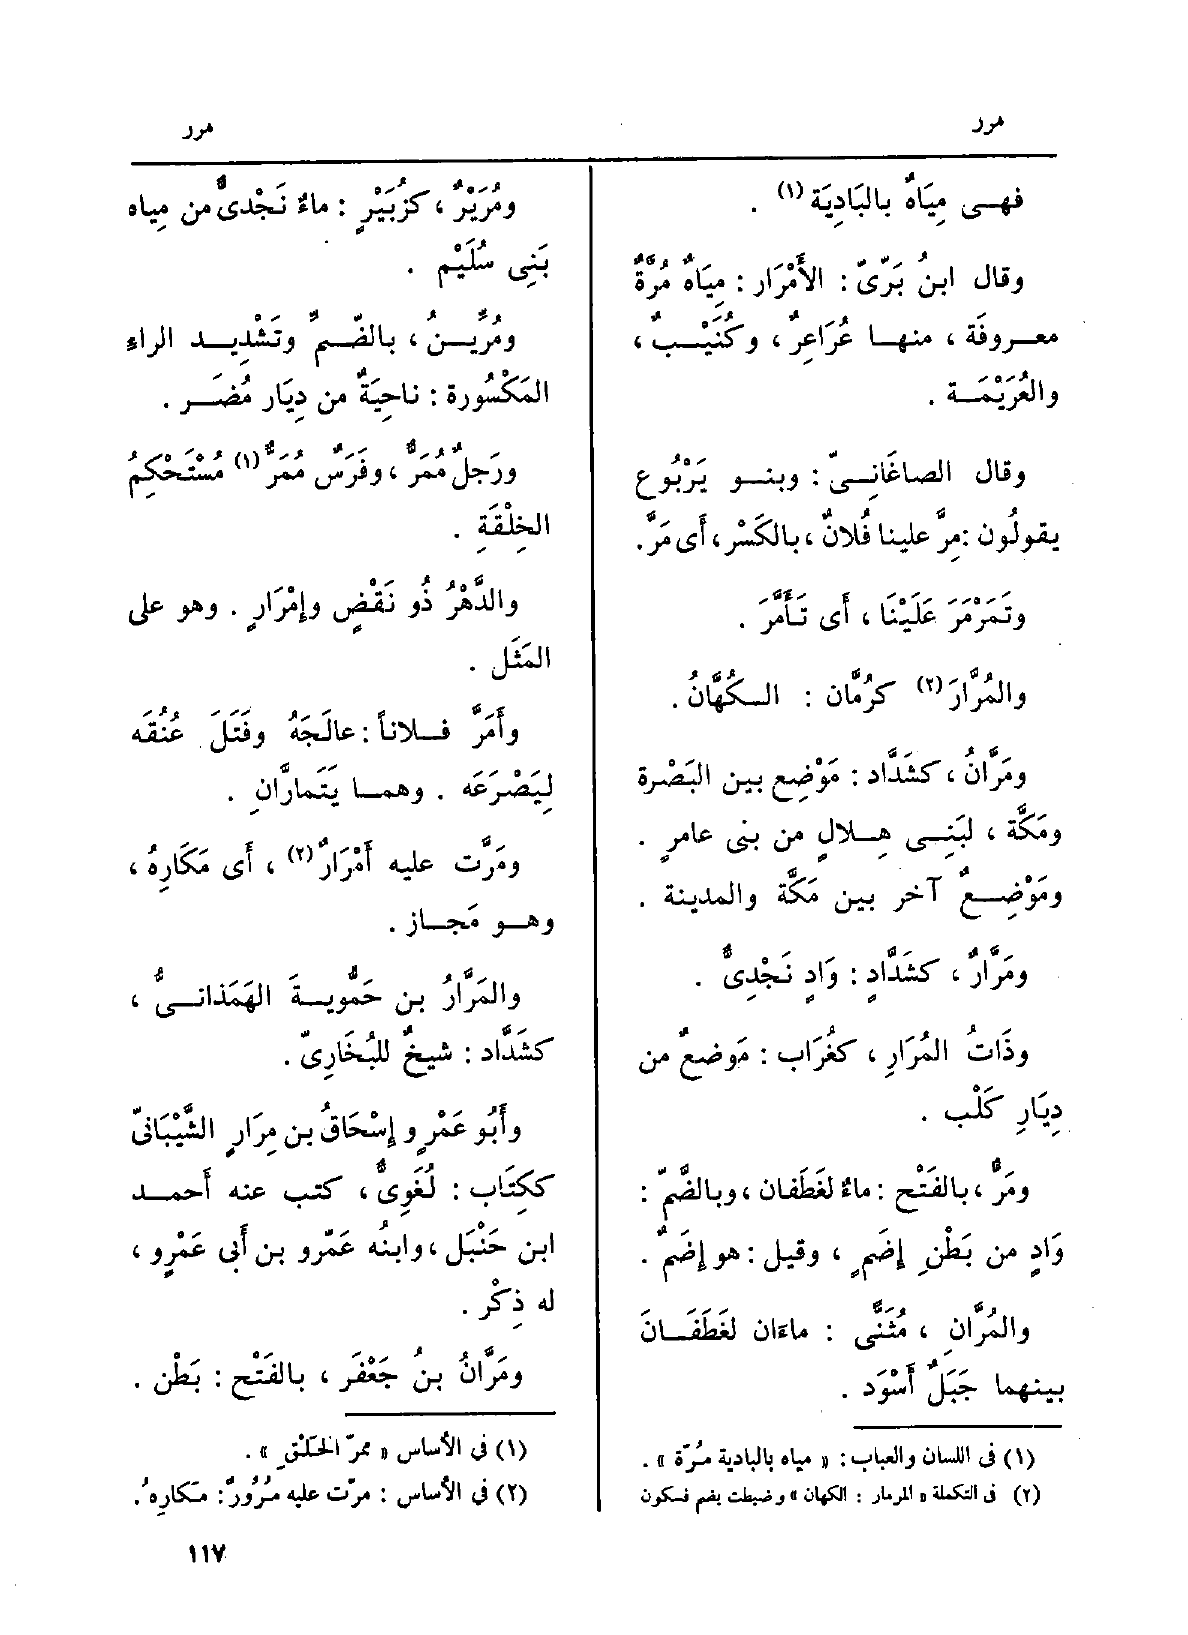 مرر
مرر
فهــى مِيَاهٌ بالبَادِيَة (١) .
وقال ابنُ بَرّىّ : الأَمْرَار : مِيَاهٌ مُرَّةٌ
معــروفَة ، منهــا عُرَاعِرٌ ، وكُنَيْــبٌ ،
والعُرَيْمَــة .
وقال الصاغَانِــىّ : وبنــو يَرْبُوع
يقولُون : مِرَّ علينا فُلانٌ ، بالكَسْر ، أَى مَرَّ .
وتَمَرْمَرَ عَلَيْنَا ، أَى تَأَمَّرَ .
والمُرَّارَ (٢) كرُمَّان : الــكُهَّانُ .
ومَرَّانُ ، كشَدَّاد : مَوْضِع بين البَصْرة
ومَكَّة ، لبَنِــى هِــلالٍ من بنى عامرٍ .
ومَوْضِــعٌ آخر بين مَكَّة والمدينة .
ومَرَّارٌ ، كشَدَّادٍ : وَادٍ نَجْدِىٌّ .
وذَاتُ المُرَارِ ، كغُرَاب : مَوضعٌ من
دِيَارِ كَلْب .
ومَرٌّ ، بالفَتْح : ماءٌ لغَطَفان ، وبالضَّمّ :
وَادٍ من بَطْنِ إِضَمٍ ، وقيل : هو إِضَمٌ .
والمُرَّانِ ، مُثَنًّى : ماءَان لغَطَفَــانَ
بينهما جَبَلٌ أَسْوَد .
(١) فى اللسان والعباب : « مياه بالبادية مُرّة » .
(٢) فى التكملة « المرمار : الكهان » وضبطت بضم فسكون
ومُرَيْرٌ ، كزُبَيْرٍ : ماءٌ نَجْدىٌّ من مِياه
بَنِى سُلَيْم .
ومُرِّيــنُ ، بالضّــمّ وتَشْدِيــد الراءِ
المَكْسُورة : ناحِيَةٌ من دِيَار مُضَــر .
ورَجلٌ مُمَرٌّ ، وفَرَسٌ مُمَرٌّ (١) مُسْتَحْكِمُ
الخِلْقَةِ .
والدَّهْرُ ذُو نَقْضٍ وإِمْرَارٍ . وهو على
المَثَل .
وأَمَرَّ فــلاناً : عالَجَهُ وفَتَلَ عُنُقَه
لِيَصْرَعَه . وهمــا يَتَمارَّانِ .
ومَرَّت عليه أَمْرَارٌ (٢) ، أَى مَكَارِهُ ،
وهــو مَجــاز .
والمَرَّارُ بن حَمُّويــةَ الهَمَذانــىُّ ،
كشَدَّاد : شيخٌ للبُخَارِىّ .
وأَبُو عَمْرٍو إِسْحَاقُ بن مِرَارٍ الشَّيْبَانىّ
ككِتَاب : لُغَوِىٌّ ، كتب عنه أَحمــد
ابن حَنْبَل ، وابنُه عَمْرو بن أَبى عَمْرٍو ،
له ذِكْر .
ومَرَّانُ بنُ جَعْفَر ، بالفَتْح : بَطْن .
(١) فى الأساس « ممرّ الخَلْقِ » .
(٢) فى الأساس : مرّت عليه مُرُورٌ : مَكارِهُ .
١١٧